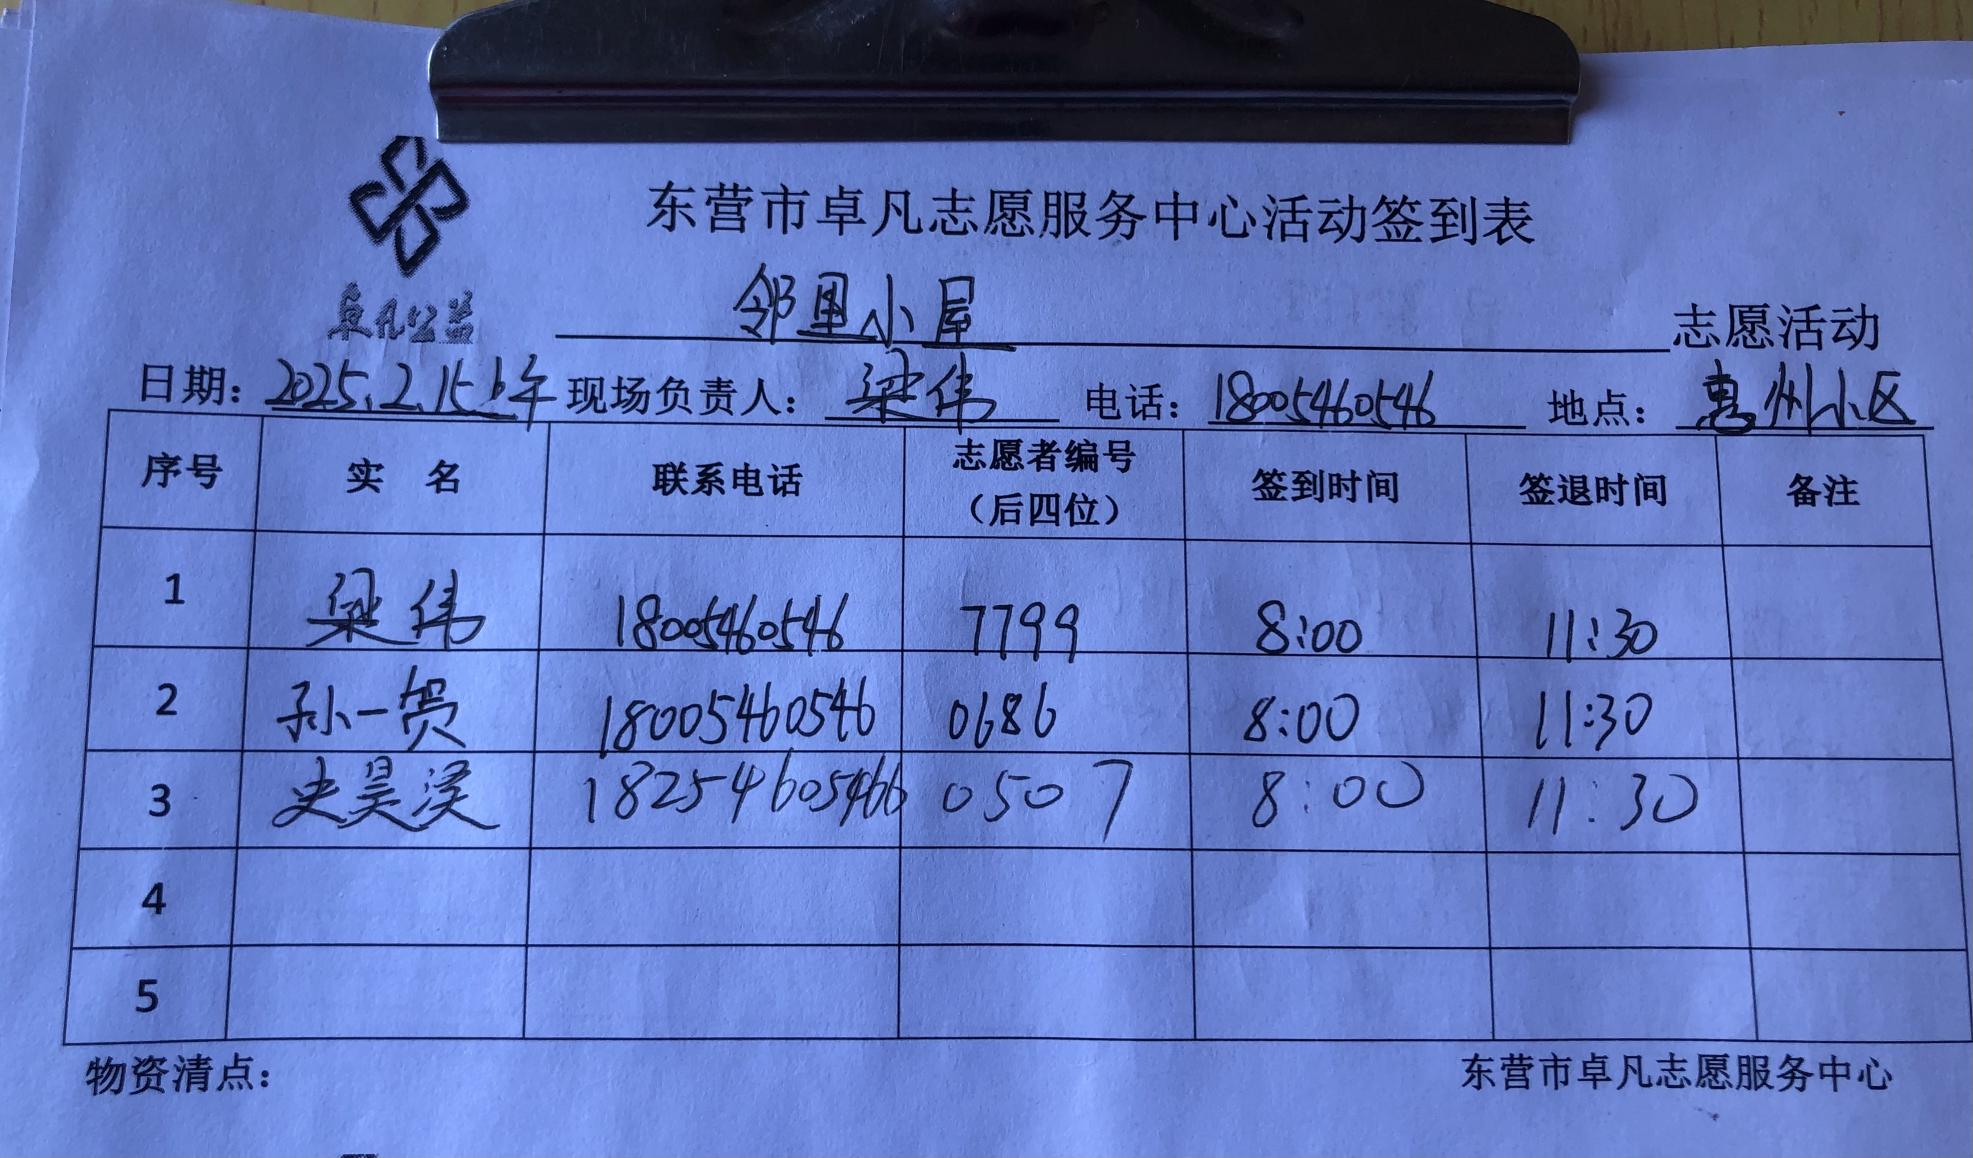 东营市卓凡志愿服务中心活动签到表
卓凡公益
邻里小屋 志愿活动
日期：2025.2.15上午 现场负责人：梁伟 电话：18005460546 地点：惠州小区
序号 实 名 联系电话 志愿者编号（后四位） 签到时间 签退时间 备注
1 梁伟 18005460546 7799 8:00 11:30
2 孙一贺 18005460546 0686 8:00 11:30
3 史昊溪 18254605466 0507 8:00 11:30
4
5
物资清点： 东营市卓凡志愿服务中心